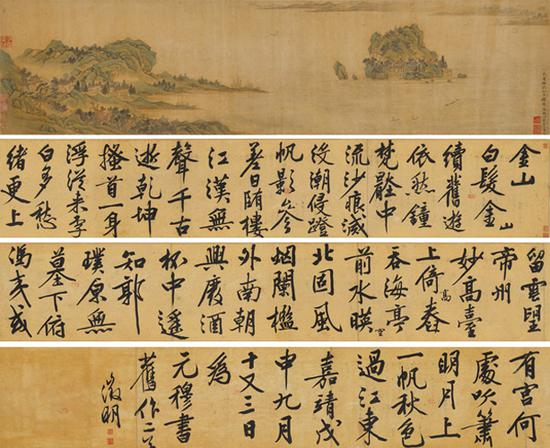 金山
白髮金山
續舊遊
依然鐘
梵殷中
流沙痕滅
沒潮侵磴
帆影參
差日隋樓
江漢無
聲千古
逝乾坤
搔首一身
浮從來李
白多愁
緒更上
留雲望
帝州
妙高臺
上倚高舂
吞海亭
前水映空
北固風
烟闌檻
外南朝
興廢酒
杯中遙
知郭
璞原無
墓下俯
馮夷或
有宮何
處吹簫
明月上
一帆秋色
過江東
嘉靖戊
申九月
十又三日
為
元穆書
舊作二首
徵明